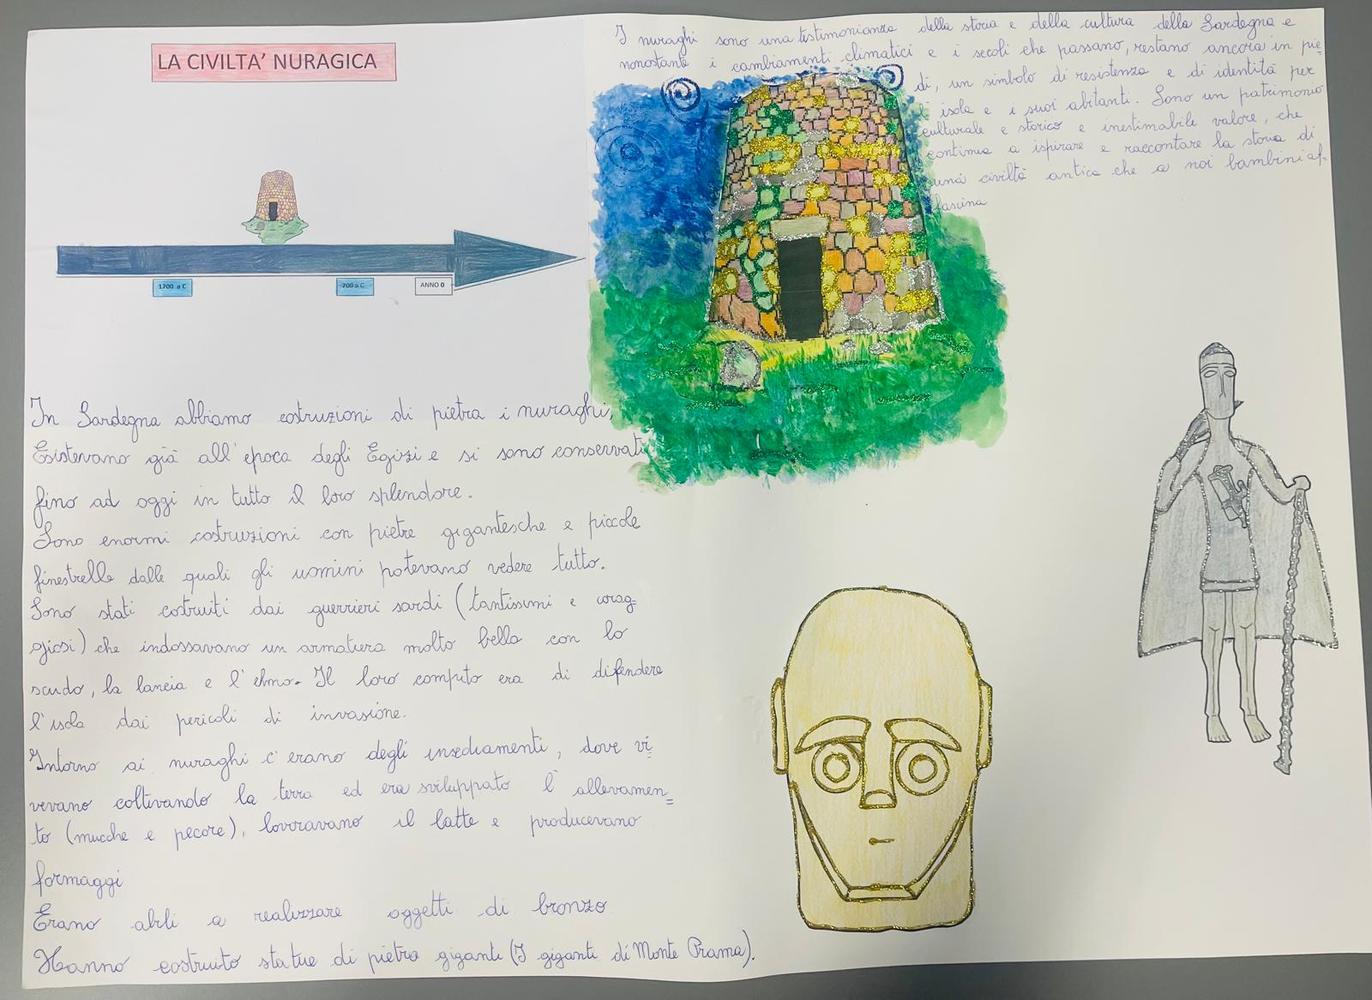 LA CIVILTA' NURAGICA
1700 a C
700 a C
ANNO 0
I nuraghi sono una testimonianza della storia e della cultura della Sardegna e
nonostante i cambiamenti climatici e i secoli che passano, restano ancora in pie=
di, un simbolo di resistenza e di identità per
l'isola e i suoi abitanti. Sono un patrimonio
culturale e storico e inestimabile valore, che
continua a ispirare e raccontare la storia di
una civiltà antica che a noi bambini af-
fascina
In Sardegna abbiamo costruzioni di pietra i nuraghi,
Esistevano già all'epoca degli Egizi e si sono conservati
fino ad oggi in tutto il loro splendore.
Sono enormi costruzioni con pietre gigantesche e piccole
finestrelle dalle quali gli uomini potevano vedere tutto.
Sono stati costruiti dai guerrieri sardi (tantissimi e corag-
giosi) che indossavano un armatura molto bella con lo
scudo, la lancia e l'elmo. Il loro compito era di difendere
l'isola dai pericoli di invasione.
Intorno ai nuraghi c'erano degli insediamenti, dove vi=
vevano coltivando la terra ed era sviluppato l'allevamen=
to (mucche e pecore), lavoravano il latte e producevano
formaggi
Erano abili a realizzare oggetti di bronzo
Hanno costruito statue di pietra giganti (I giganti di Monte Prama).